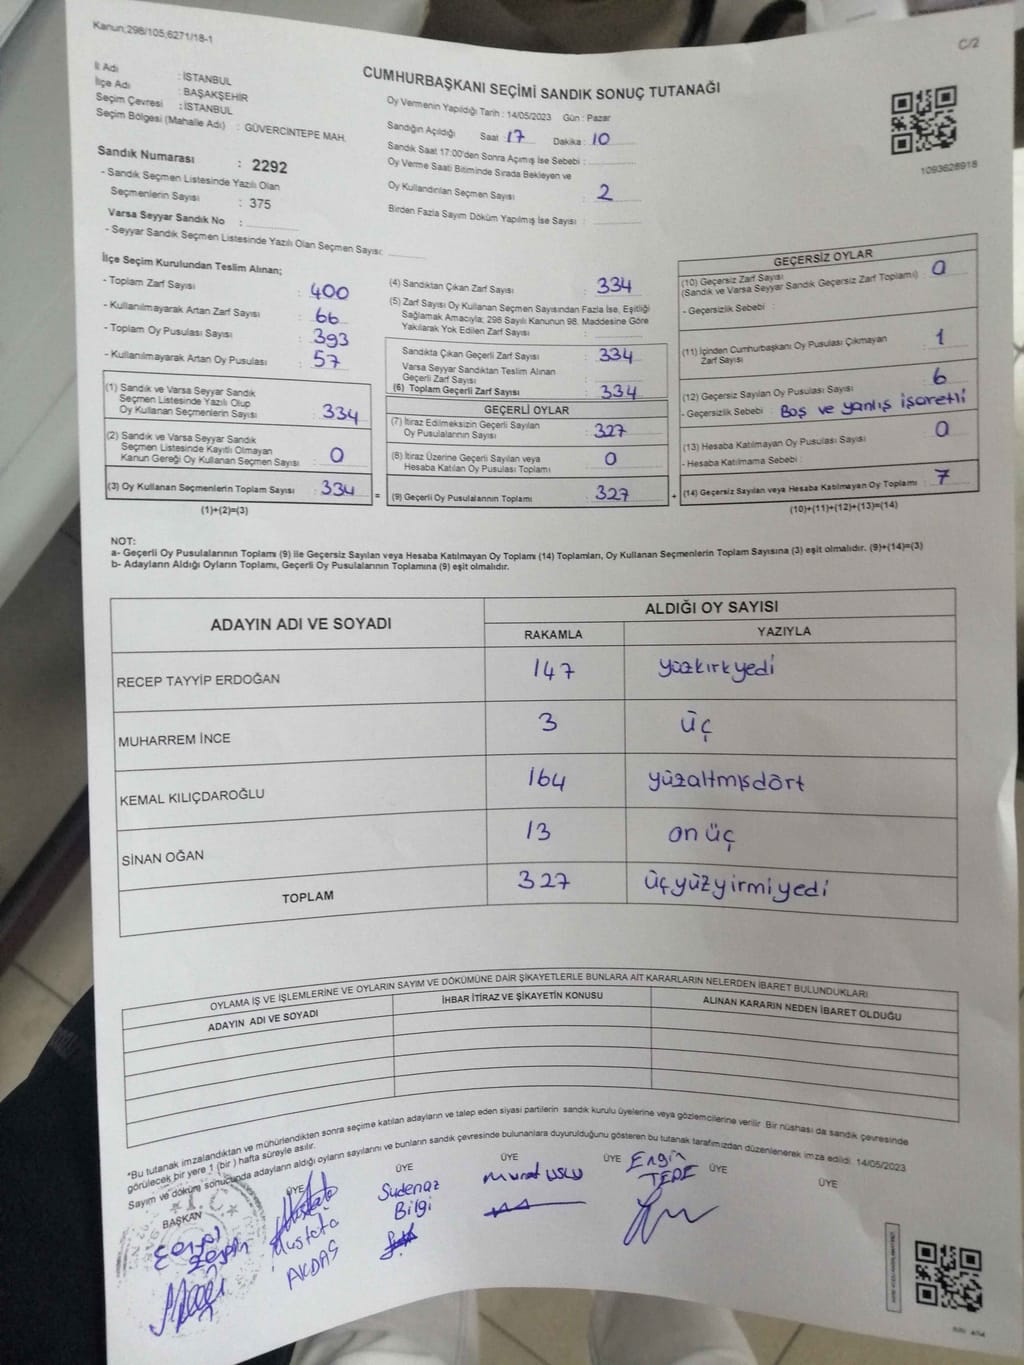 Kanun;298/105;6271/18-1
C/2
CUMHURBAŞKANI SEÇİMİ SANDIK SONUÇ TUTANAĞI
İl Adı : İSTANBUL
İlçe Adı : BAŞAKŞEHİR
Seçim Çevresi : İSTANBUL
Seçim Bölgesi (Mahalle Adı) : GÜVERCİNTEPE MAH.
Sandık Numarası : 2292
- Sandık Seçmen Listesinde Yazılı Olan
Seçmenlerin Sayısı : 375
Varsa Seyyar Sandık No :
- Seyyar Sandık Seçmen Listesinde Yazılı Olan Seçmen Sayısı:
Oy Vermenin Yapıldığı Tarih : 14/05/2023 Gün : Pazar
Sandığın Açıldığı Saat : 17 Dakika : 10
Sandık Saat 17:00'den Sonra Açımış İse Sebebi :
Oy Verme Saati Bitiminde Sırada Bekleyen ve
Oy Kullandırılan Seçmen Sayısı : 2
Birden Fazla Sayım Döküm Yapılmış İse Sayısı :
1093626918
İlçe Seçim Kurulundan Teslim Alınan;
- Toplam Zarf Sayısı : 400
- Kullanılmayarak Artan Zarf Sayısı : 66
- Toplam Oy Pusulası Sayısı : 393
- Kullanılmayarak Artan Oy Pusulası : 57
(1) Sandık ve Varsa Seyyar Sandık
Seçmen Listesinde Yazılı Olup
Oy Kullanan Seçmenlerin Sayısı : 334
(2) Sandık ve Varsa Seyyar Sandık
Seçmen Listesinde Kayıtlı Olmayan
Kanun Gereği Oy Kullanan Seçmen Sayısı : 0
(3) Oy Kullanan Seçmenlerin Toplam Sayısı : 334 =
(1)+(2)=(3)
(4) Sandıktan Çıkan Zarf Sayısı : 334
(5) Zarf Sayısı Oy Kullanan Seçmen Sayısından Fazla İse, Eşitliği
Sağlamak Amacıyla; 298 Sayılı Kanunun 98. Maddesine Göre
Yakılarak Yok Edilen Zarf Sayısı :
Sandıkta Çıkan Geçerli Zarf Sayısı : 334
Varsa Seyyar Sandıktan Teslim Alınan
Geçerli Zarf Sayısı :
(6) Toplam Geçerli Zarf Sayısı : 334
GEÇERLİ OYLAR
(7) İtiraz Edilmeksizin Geçerli Sayılan
Oy Pusulalarının Sayısı : 327
(8) İtiraz Üzerine Geçerli Sayılan veya
Hesaba Katılan Oy Pusulası Toplamı : 0
(9) Geçerli Oy Pusulalarının Toplamı : 327 +
GEÇERSİZ OYLAR
(10) Geçersiz Zarf Sayısı : 0
(Sandık ve Varsa Seyyar Sandık Geçersiz Zarf Toplamı)
- Geçersizlik Sebebi :
(11) İçinden Cumhurbaşkanı Oy Pusulası Çıkmayan
Zarf Sayısı : 1
(12) Geçersiz Sayılan Oy Pusulası Sayısı : 6
- Geçersizlik Sebebi : Boş ve yanlış işaretli
(13) Hesaba Katılmayan Oy Pusulası Sayısı : 0
- Hesaba Katılmama Sebebi :
(14) Geçersiz Sayılan veya Hesaba Katılmayan Oy Toplamı : 7
(10)+(11)+(12)+(13)=(14)
NOT:
a- Geçerli Oy Pusulalarının Toplamı (9) ile Geçersiz Sayılan veya Hesaba Katılmayan Oy Toplam (14) Toplamları, Oy Kullanan Seçmenlerin Toplam Sayısına (3) eşit olmalıdır. (9)+(14)=(3)
b- Adayların Aldığı Oyların Toplamı, Geçerli Oy Pusulalarının Toplamına (9) eşit olmalıdır.
ADAYIN ADI VE SOYADI
ALDIĞI OY SAYISI
RAKAMLA YAZIYLA
RECEP TAYYİP ERDOĞAN 147 yüzkırkyedi
MUHARREM İNCE 3 üç
KEMAL KILIÇDAROĞLU 164 yüzaltmışdört
SİNAN OĞAN 13 on üç
TOPLAM 327 üçyüzyirmiyedi
OYLAMA İŞ VE İŞLEMLERİNE VE OYLARIN SAYIM VE DÖKÜMÜNE DAİR ŞİKAYETLERLE BUNLARA AİT KARARLARIN NELERDEN İBARET BULUNDUKLARI
ADAYIN ADI VE SOYADI İHBAR İTİRAZ VE ŞİKAYETİN KONUSU ALINAN KARARIN NEDEN İBARET OLDUĞU
"Bu tutanak imzalandıktan ve mühürlendikten sonra seçime katılan adayların ve talep eden siyasi partilerin sandık kurulu üyelerine veya gözlemcilerine verilir. Bir nüshası da sandık çevresinde
görülecek bir yere 1 (bir) hafta süreyle asılır.
Sayım ve döküm sonucunda adayların aldığı oyların sayılarını ve bunların sandık çevresinde bulunanlara duyurulduğunu gösteren bu tutanak tarafımızdan düzenlenerek imza edildi. 14/05/2023
BAŞKAN ÜYE ÜYE ÜYE ÜYE ÜYE ÜYE
Mustafa
AKDAŞ
Sudenaz
Bilgi
Murat USLU
Engin
TEPE